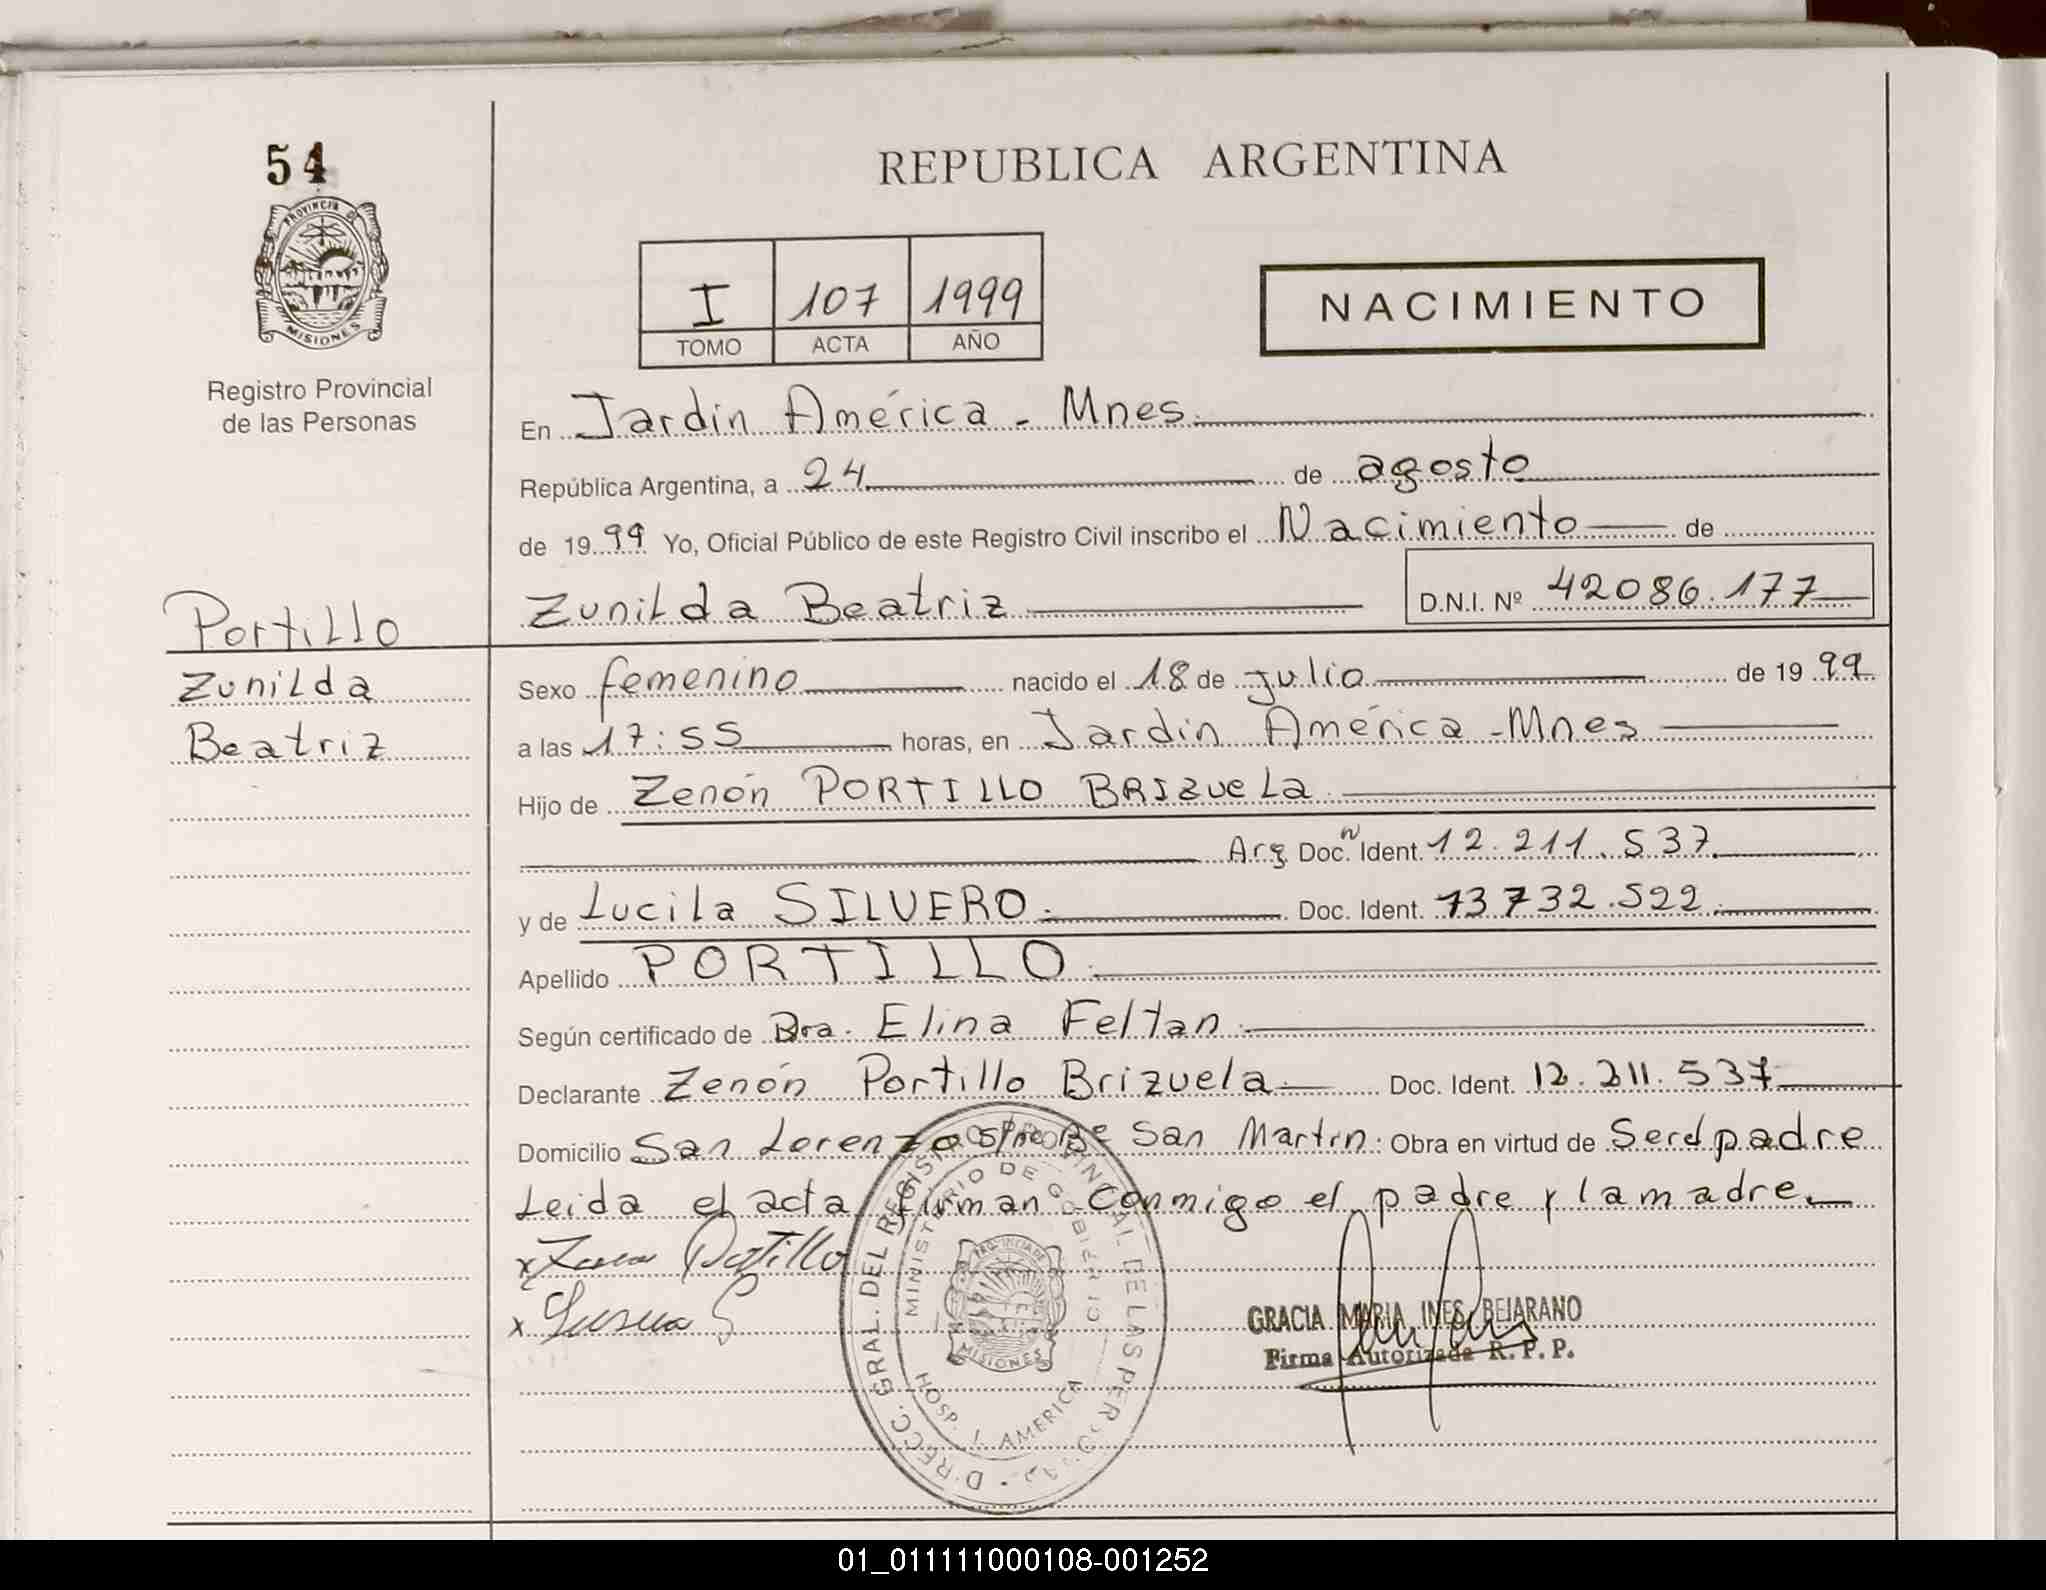 54
PROVINCIA DE
MISIONES
Registro Provincial
de las Personas
REPUBLICA ARGENTINA
I 107 1999
TOMO ACTA AÑO
NACIMIENTO
En Jardín América - Mnes.
República Argentina, a 24 de agosto
de 1999 Yo, Oficial Público de este Registro Civil inscribo el Nacimiento de
Zunilda Beatriz D.N.I. Nº 42086.177
Portillo
Zunilda
Beatriz
Sexo femenino nacido el 18 de julio de 1999
a las 17:55 horas, en Jardín América - Mnes
Hijo de Zenón PORTILLO BRIZUELA
Arg Doc. Ident. 12.211.537
y de Lucila SILVERO. Doc. Ident. 13732.522.
Apellido PORTILLO.
Según certificado de Dra. Elina Feltan.
Declarante Zenón Portillo Brizuela. Doc. Ident. 12.211.537
Domicilio San Lorenzo s/nº Bº San Martín. Obra en virtud de Ser el padre
Leida el acta firman conmigo el padre y la madre.
x Portillo
x
DIRECC. GRAL. DEL REGISTRO PROVINCIAL DE LAS PERSONAS
MINISTERIO DE GOBIERNO
PROVINCIA DE
MISIONES
HOSP. J. AMERICA
GRACIA MARIA INES BEJARANO
Firma Autorizada R. P. P.
01_011111000108-001252